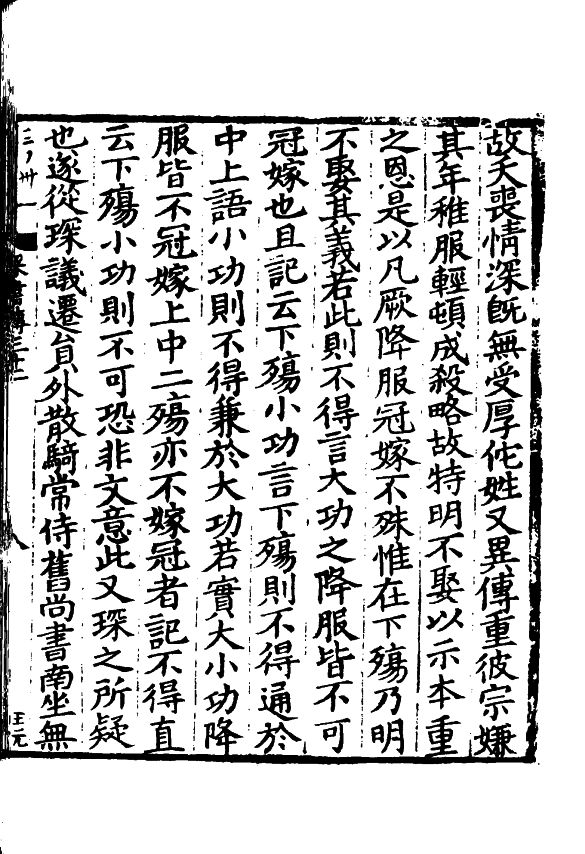 故夭喪情深旣無受厚佗姓又異傳重彼宗嫌
其年稚服輕頓成殺略故特明不娶以示本重
之恩是以凡厥降服冠嫁不殊惟在下殤乃明
不娶其義若此則不得言大功之降服皆不可
冠嫁也且記云下殤小功言下殤則不得通於
中上語小功則不得兼於大功若實大小功降
服皆不冠嫁上中二殤亦不嫁冠者記不得直
云下殤小功則不可恐非文意此又琛之所疑
也遂從琛議遷員外散騎常侍舊尚書南坐無
梁書傳二十
八
王元